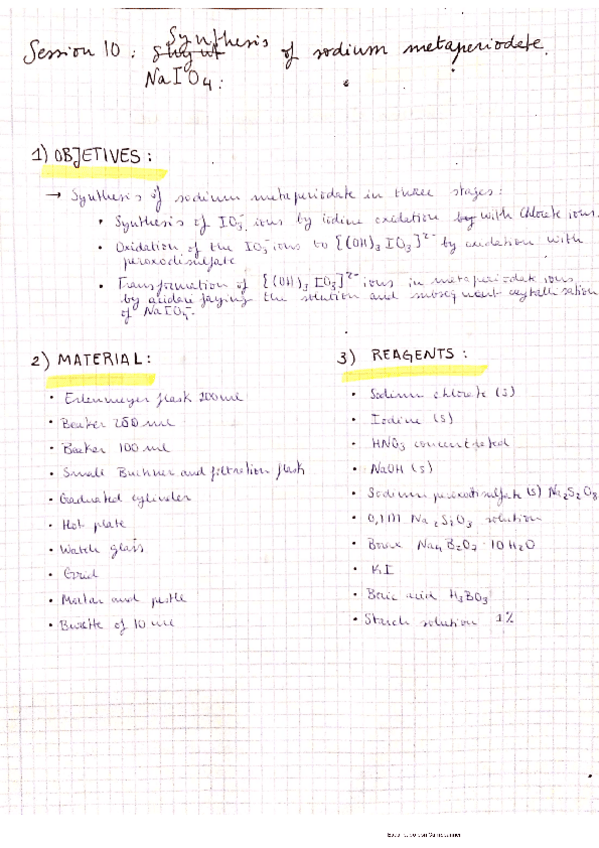 Session 10 : Synthesis of sodium metaperiodate.
NaIO4 :
1) OBJETIVES :
→ Synthesis of sodium metaperiodate in three stages :
• Synthesis of IO3⁻ ions by iodine oxidation by with Chlorate ions.
• Oxidation of the IO3⁻ ions to [(OH)3 IO3]²⁻ by oxidation with
peroxodisulfate
• Transformation of [(OH)3 IO3]²⁻ ions in metaperiodate ions
by the solution and subsequent crystallisation
of NaIO4.
2) MATERIAL :
• Erlenmeyer flask 200 ml
• Beaker 250 ml
• Beaker 100 ml
• Small Buchner and filtration flask
• Graduated cylinder
• Hot plate
• Watch glass
• Grid
• Mortar and pestle
• Burette of 10 ml
3) REAGENTS :
• Sodium chlorate (s)
• Iodine (s)
• HNO3 concentrated
• NaOH (s)
• Sodium peroxodisulfate (s) Na2S2O8
• 0,1M solution
• Borax · 10 H2O
• KI
• Boric acid H3BO3
• Starch solution 1%